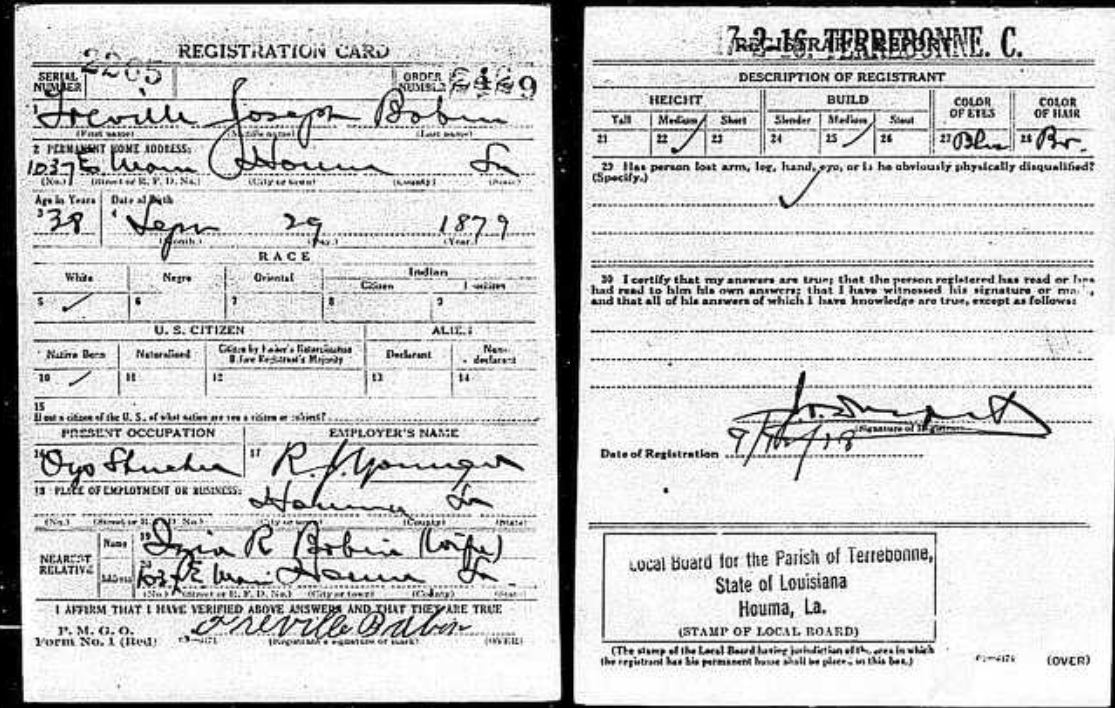 REGISTRATION CARD
SERIAL NUMBER 2265 ORDER NUMBER
Treville Joseph Bobin
(First name) (Middle name) (Last name)
2 PERMANENT HOME ADDRESS:
1037 E. Main Houma La
(No.) (Street or R. F. D. No.) (City or town) (County) (State)
Age in Years Date of Birth
3 38 4 Sepr 29 1879
(Month.) (Day.) (Year.)
RACE
White Negro Oriental Indian
Citizen Noncitizen
5 ✓ 6 7 8 9
U. S. CITIZEN ALIEN
Native Born Naturalized Citizen by Father's Naturalization Before Registrant's Majority Declarant Non-declarant
10 ✓ 11 12 13 14
15
If not a citizen of the U. S., of what nation are you a citizen or subject?
PRESENT OCCUPATION EMPLOYER'S NAME
16 Oys Shucker 17 R. J. Younger
18 PLACE OF EMPLOYMENT OR BUSINESS:
Houma La
(No.) (Street or R. F. D. No.) (City or town) (County) (State)
NEAREST RELATIVE
Name 19 R Bobin (Wife)
Address 20 E Main Houma La.
(No.) (Street or R. F. D. No.) (City or town) (County) (State)
I AFFIRM THAT I HAVE VERIFIED ABOVE ANSWERS AND THAT THEY ARE TRUE
P. M. G. O.
Form No. 1 (Red) Treville Babin
(Registrant's signature or mark) (OVER)
7-3-16. TERREBONNE. C.
REGISTRAR'S REPORT
DESCRIPTION OF REGISTRANT
HEIGHT BUILD COLOR OF EYES COLOR OF HAIR
Tall Medium Short Slender Medium Stout
21 22 ✓ 23 24 25 ✓ 26 27 Blu 28 Br.
29 Has person lost arm, leg, hand, eye, or is he obviously physically disqualified?
(Specify.)
✓
30 I certify that my answers are true; that the person registered has read or has
had read to him his own answers; that I have witnessed his signature or mark,
and that all of his answers of which I have knowledge are true, except as follows:
(Signature of Registrar)
Date of Registration
Local Board for the Parish of Terrebonne,
State of Louisiana
Houma, La.
(STAMP OF LOCAL BOARD)
(The stamp of the Local Board having jurisdiction of the area in which
the registrant has his permanent home shall be placed in this box.)
(OVER)